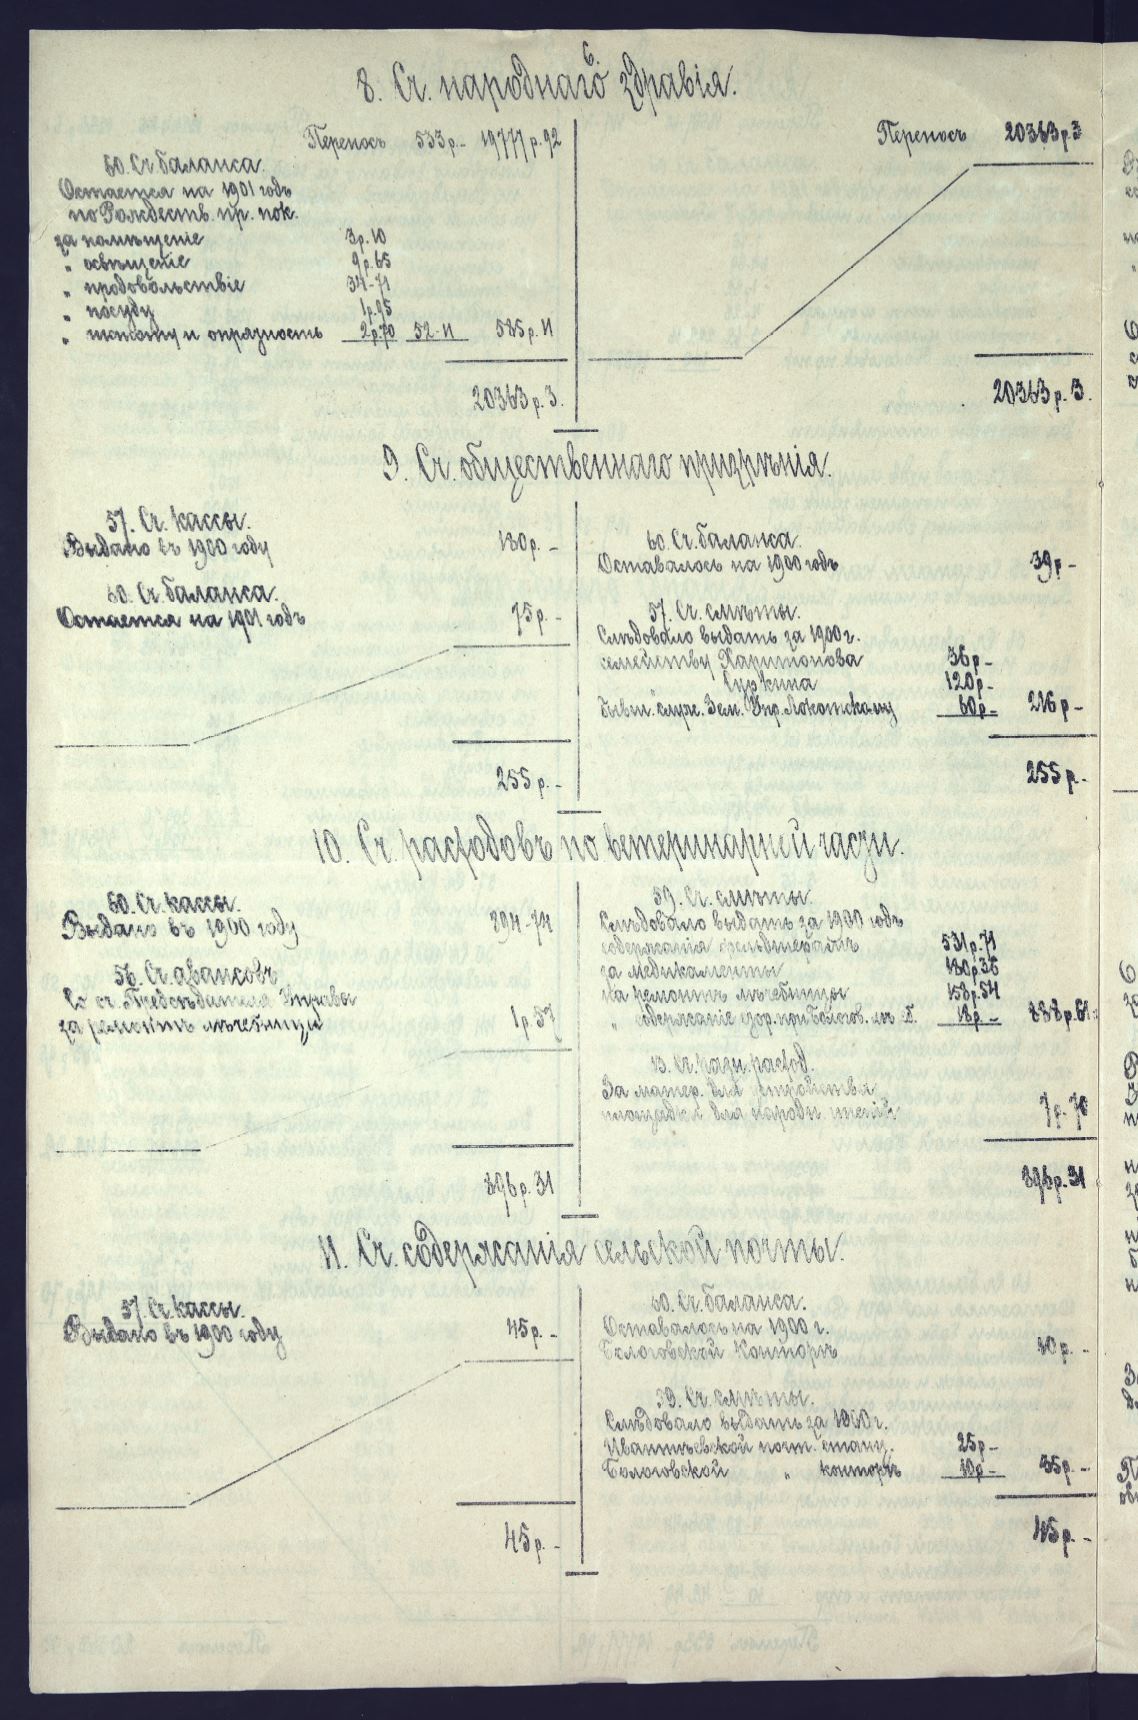 6.
8. Сч. народнаго здравія.
Переносъ 533р.- 19777р.92
60. Сч. баланса.
Остается на 1901 годъ
по Рождеств. пр. пок.
за помѣщеніе 3р.10
" освѣщеніе 9р.65
" продовольствіе 34-71
" посуду 1р.95
" чистоту и опрятность 2р.70 52-11 585р.11
20363р.3.
Переносъ 20363р.3
20363р.3.
9. Сч. общественнаго призрѣнія.
57. Сч. кассы.
Выдано въ 1900 году 180р.-
60. Сч. баланса.
Остается на 1901 годъ 75р.-
255р.-
60. Сч. баланса.
Оставалось на 1900 годъ 39р-
57. Сч. смѣты.
Слѣдовало выдать за 1900г.
семейству Харитонова 36р-
" Суркина 120р-
бывш. служ. Зем. Упр. Локотскому 60р- 216р-
255р.-
10. Сч. расходовъ по ветеринарной части.
60. Сч. кассы.
Выдано въ 1900 году 894-74
56. Сч. авансовъ
Со сч. Предсѣдателя Управы
за ремонтъ лѣчебницы 1р.57
896р.31
59. Сч. смѣты.
Слѣдовало выдать за 1900 годъ
содержанія фельдшерамъ 531р.71
за медикаменты 180р.36
на ремонтъ лѣчебницы 158р.54
" содержаніе 18р- 888р.61.
13. Сч. разн. расход.
За матер. для устройства
площадки для народн. чтеній 7р.70
896р.31
11. Сч. содержанія сельской почты.
57. Сч. кассы.
Выдано въ 1900 году 45р.-
45р.-
60. Сч. баланса.
Оставалось на 1900 г.
Бологовской конторѣ 10р.-
59. Сч. смѣты.
Слѣдовало выдать за 1900г.
почт. станц. 25р-
Бологовской " конторѣ 10р- 35р.-
45р.-